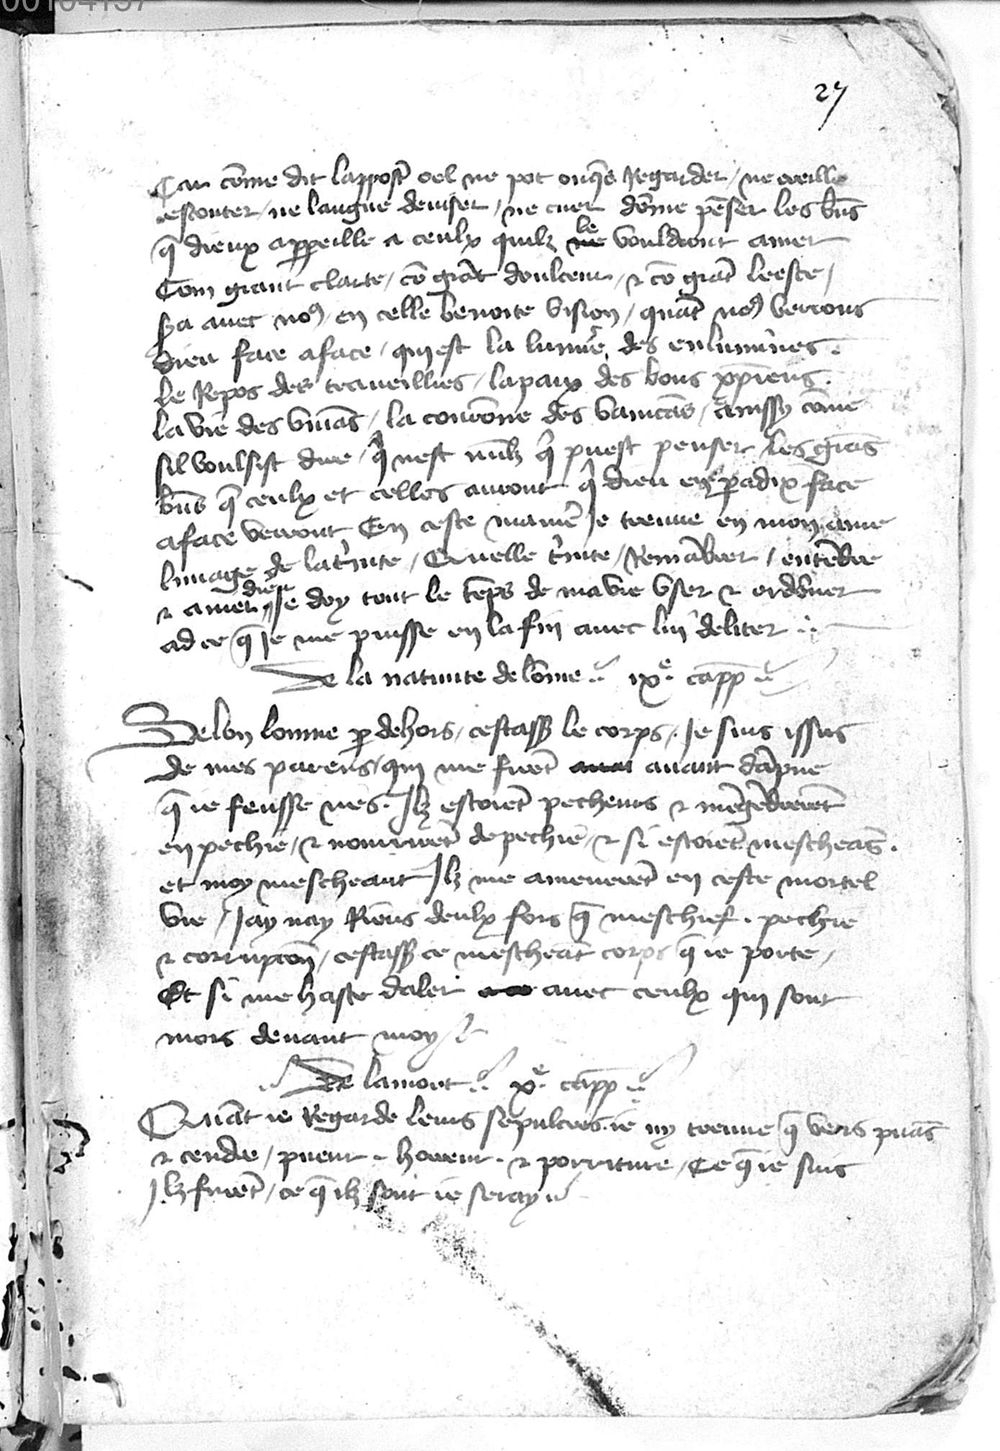 00104157
27
Car cõme dit lappost̃ oel ne pot onq̃s Regarder / ne oreille
escouter / ne langue deuiser / ne cuer dõme pẽser les bñs
q̃ dieux appeille a ceulx quilz le vouldront amer
Com grant clarte / cõ grãt doulceur / ⁊ cõ grãt leesce /
sa auec noꝰ en celle benoite vision / quãt noꝰ verrons
dieu face aface / qui est la lumie͛ des enlumines.
le Repos des traueillies / la paix des bons xp̃iens.
la vie des viuãs / la courõne des vaincãs / aussy cõme
sil voulsist dire / q̃ nest nulz q̃ puest penser les grãs
bñs q̃ ceulx et celles auront q̃ dieu en padix face
aface verront En ceste manie͛ Je treuue en mon ame
limage de la t͛nite / Quelle t͛nite / Remãbrer / entẽdre
⁊ amer diese Je doy tout le tẽps de ma vie vser ⁊ ordõner
ad ce q̃ Je me puisse en la fin auec lui deliter
De la natiuite de lõme ixᵉ capp
Selon lomme p dehors / cestass le corps / Je suis issus
de mes parens / qui me firẽt auant dãpne
q̃ ie feusse nes. Ilz estoiẽt pecheurs ⁊ mẽgẽdrerẽt
en pechie / ⁊ nourrirẽt de pechie / ⁊ si estoiẽt mescheãs.
et moy mescheant Ilz me amenerẽt en ceste mortel
vie / Jay nay Riẽns deulx fors q̃ meschief. pechie
⁊ corrupcõn / cestass ce mescheãt corps q̃ ie porte /
Et si me haste daler auec ceulx qui sont
mors deuant moy
De lamort xᵉ capp
Quãt ie Regarde leurs sepulcres ie ny treuue q̃ vers puãs
⁊ cendre / pueur. horreur. ⁊ porriture / Ce q̃ ie suis
Jlz furẽt / ce q̃ ilz sont ie seray